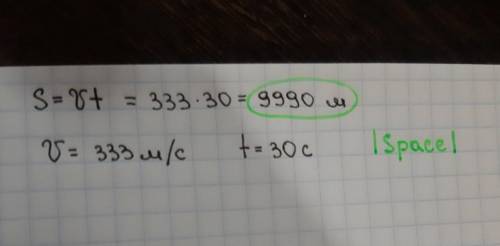 S = vt = 333·30 = 9990 м
v = 333 м/с t = 30 с |Space|